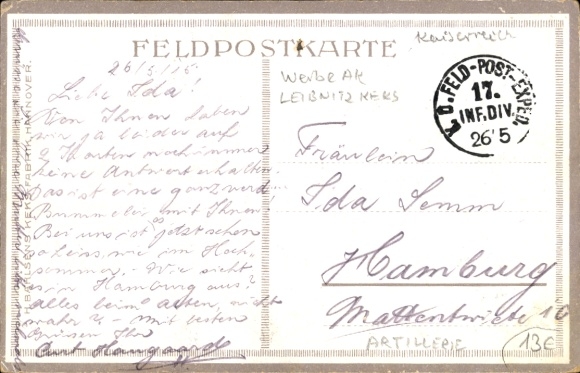 FELDPOSTKARTE
Kaiserreich
Werbe AK
LEIBNITZ KEKS
K.D. FELD-POST-EXPED.
17.
INF. DIV.
26 5
H. BAHLSENS KEKS-FABRIK HANNOVER.
26/5/15.
Liebe Ida!
Von Ihnen haben
wir ja leider auf
2 Karten noch immer
keine Antwort erhalten.
Das ist eine ganz
Bummelei mit Ihnen!
Bei uns ist jetzt schon
so heiss wie im Hoch-
sommer. Wie sieht
es in Hamburg aus?
alles beim alten, nicht
wahr? - Mit besten
Grüssen Ihr
Curt
Fräulein
Ida Semm
Hamburg
Mattentwiete 10
ARTILLERIE
13€